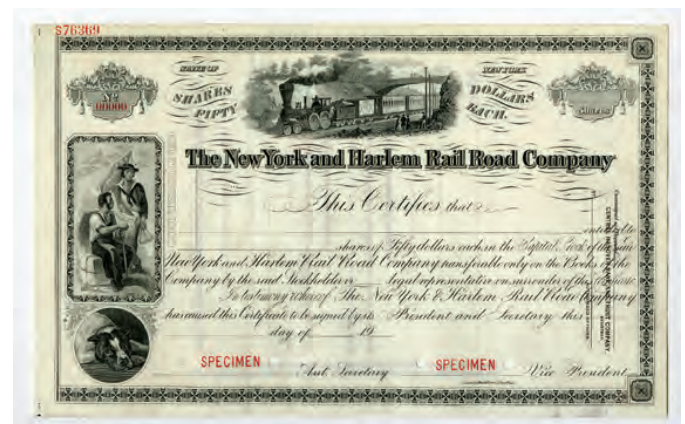 S76369
STATE OF NEW YORK
No
00000
SHARES DOLLARS
FIFTY EACH.
Shares
The New York and Harlem Rail Road Company
This Certifies that
entitled to
shares of Fifty dollars each in the Capital Stock of the said
New York and Harlem Rail Road Company transferable only on the Books of the
Company by the said Stockholder or legal representative on surrender of this Certificate
In testimony whereof The New York & Harlem Rail Road Company
has caused this Certificate to be signed by its President and Secretary this
day of 19
SPECIMEN SPECIMEN
Asst. Secretary Vice President